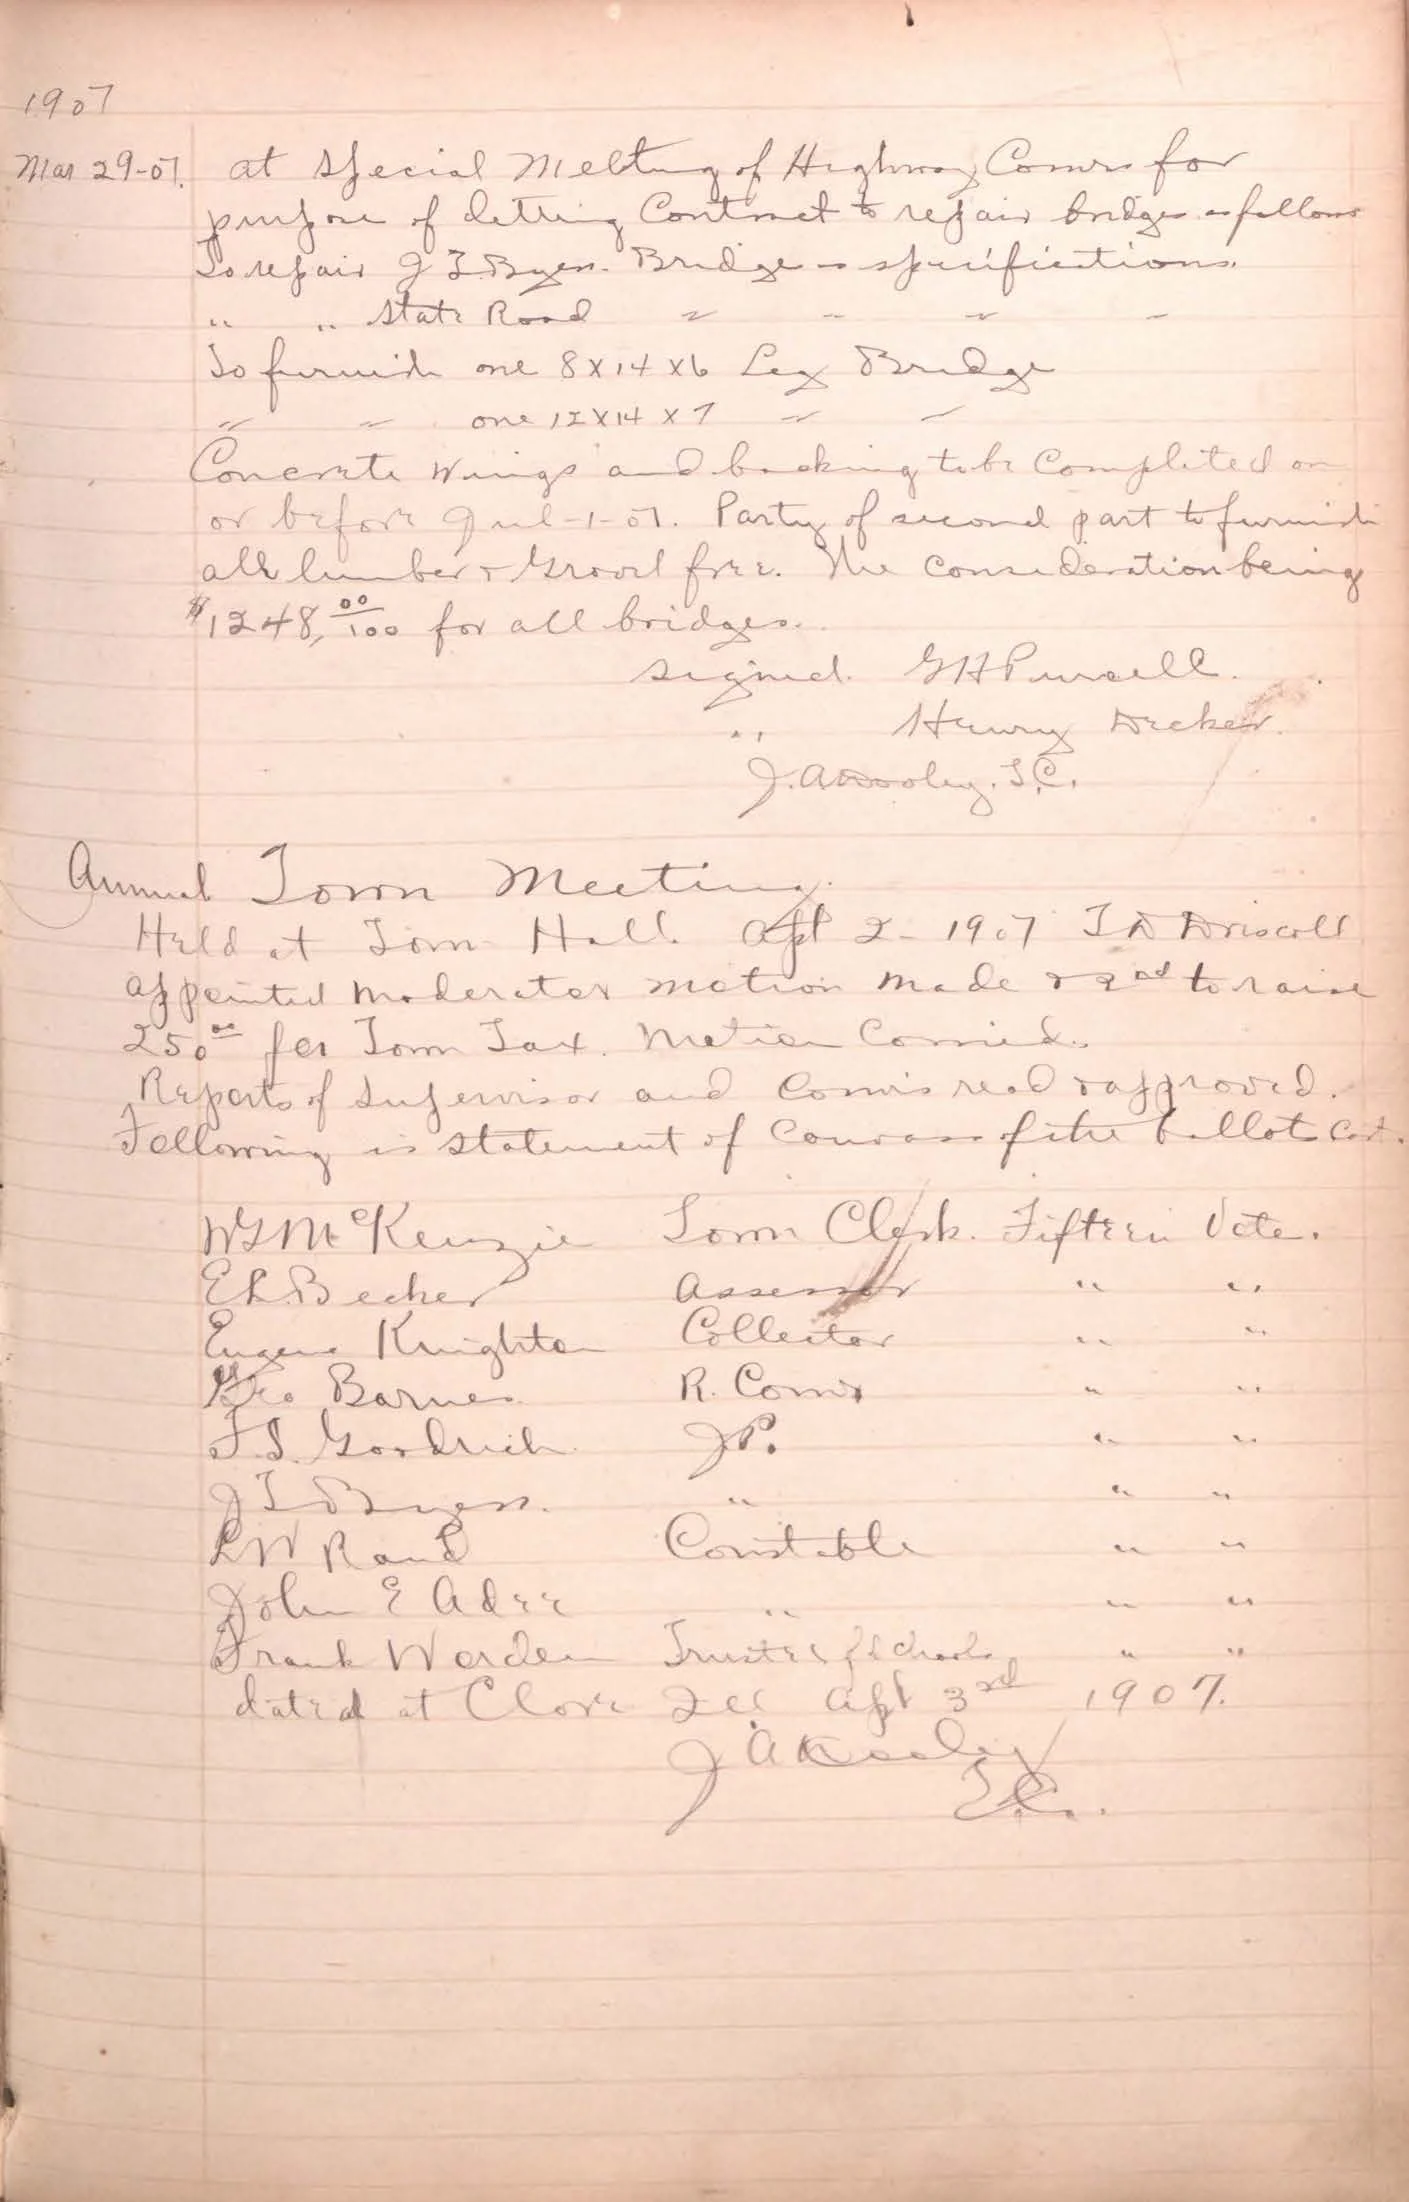 1907
Mar 29-07. at Special Meeting of Highway Comrs for
purpose of letting Contract to repair bridges as follows
To repair J T Byers. Bridge as specifications.
" " State Road " " " "
To furnish one 8 x 14 x 6 Leg Bridge
" " one 12 x 14 x 7 " "
Concrete Wings and backing to be Completed on
or before Jul-1-07. Party of second part to furnish
all lumber & Gravel free. The consideration being
$1248, 00/100 for all bridges.
signed. G H Purcell.
" Henry Decker.
J. A Dooley. T.C.
Annual Town Meeting.
Held at Town Hall. Apl 2 - 1907 T D Driscoll
appointed moderator motion made & 2nd to raise
250 00 for Town Tax. Motion Carried.
Reports of Supervisor and Comrs read & approved.
Following is statement of Canvass of the ballots Cast.
W G McKenzie Town Clerk. Fifteen Vote.
E L. Becker Assessor " "
Eugene Knighton Collector " "
Geo Barnes R. Comr " "
F. S. Goodrich J P. " "
J T Byers. " " "
L W Rand Constable " "
John E Adee " " "
Frank Worden Trustee of Schools " "
dated at Clare Ill Apl 3rd 1907.
J A Dooley
T.C.